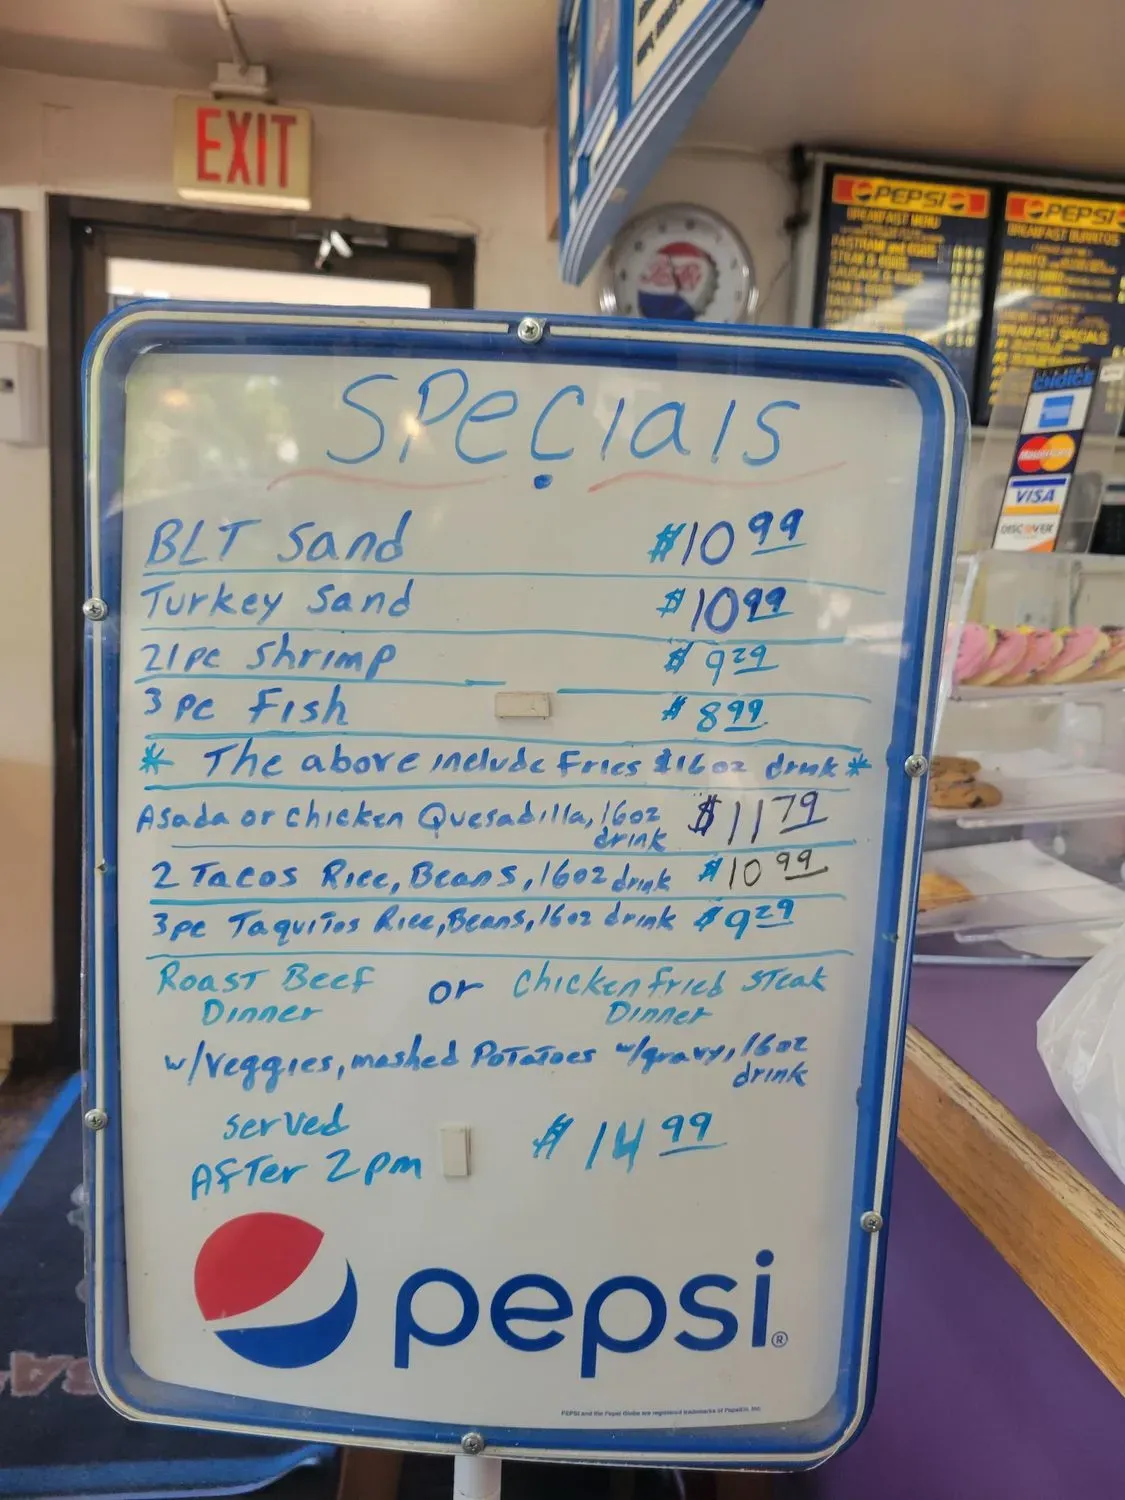 EXIT
PEPSI
PEPSI
BREAKFAST MENU
BREAKFAST BURRITOS
PASTRAMI and EGGS
STEAK & EGGS
BURRITO
BREAKFAST SPECIALS
CHOICE
MasterCard
VISA
DISCOVER
SPecials
BLT Sand $10 99
Turkey Sand $10 99
21pc Shrimp $9 29
3 pc Fish $8 99
* The above include Fries & 16oz drink *
Asada or Chicken Quesadilla, 16oz drink $11 79
2 Tacos Rice, Beans, 16oz drink $10 99
3pc Taquitos Rice, Beans, 16oz drink $9 29
Roast Beef Dinner or Chicken fried Steak Dinner
w/Veggies, mashed Potatoes w/gravy, 16oz drink
Served
After 2pm $14 99
pepsi®
PEPSI and the Pepsi Globe are registered trademarks of PepsiCo, Inc.